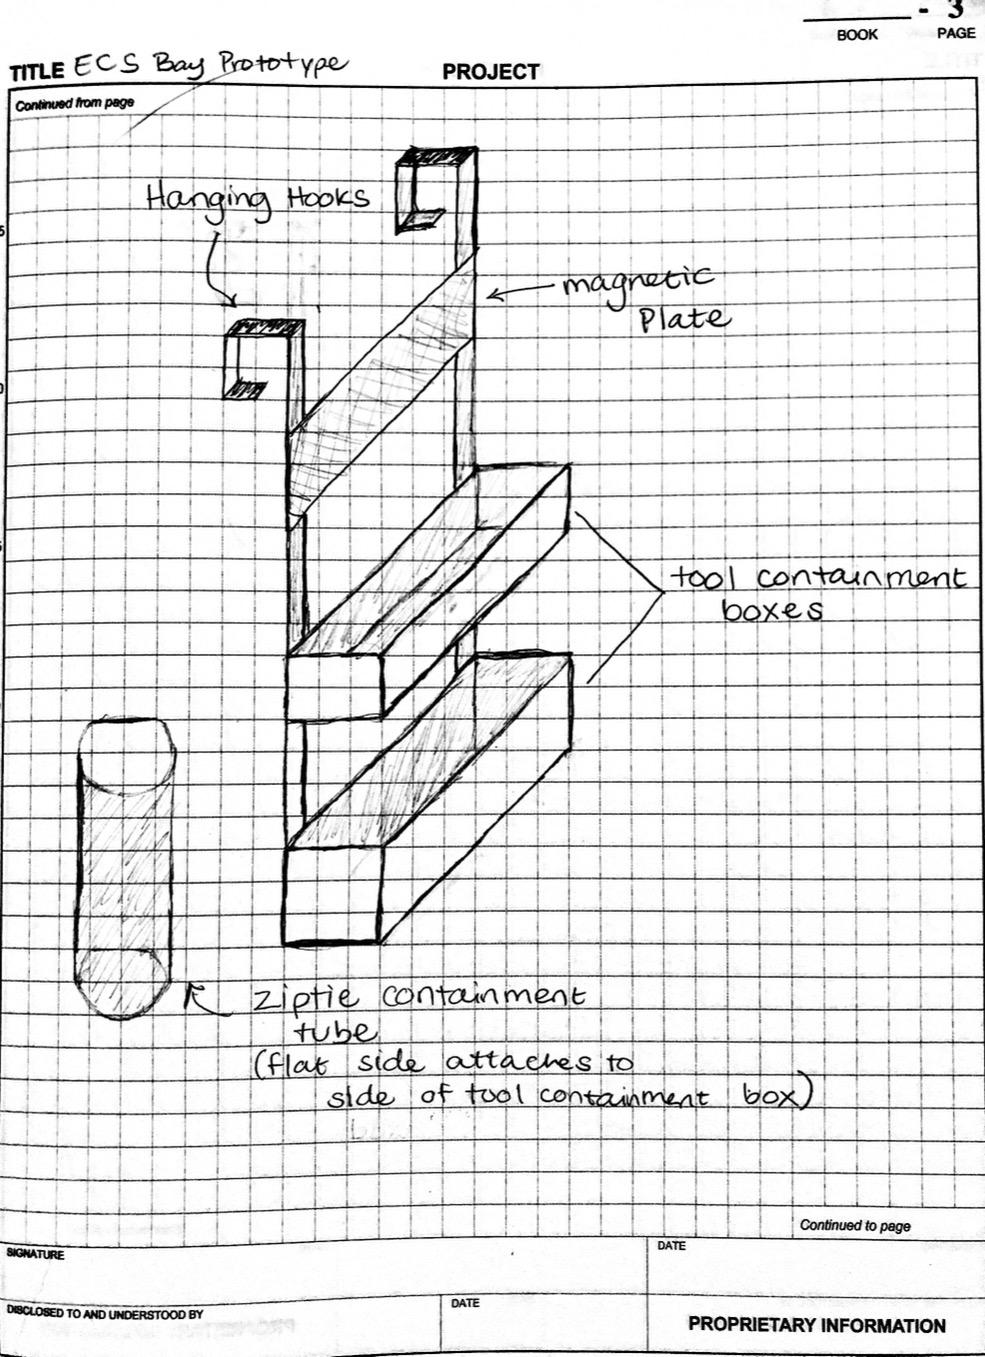 - 3
BOOK PAGE
TITLE ECS Bay Prototype PROJECT
Continued from page
Hanging Hooks
magnetic
Plate
tool containment
boxes
ziptie containment
tube
(flat side attaches to
side of tool containment box)
Continued to page
SIGNATURE
DATE
DISCLOSED TO AND UNDERSTOOD BY
DATE
PROPRIETARY INFORMATION